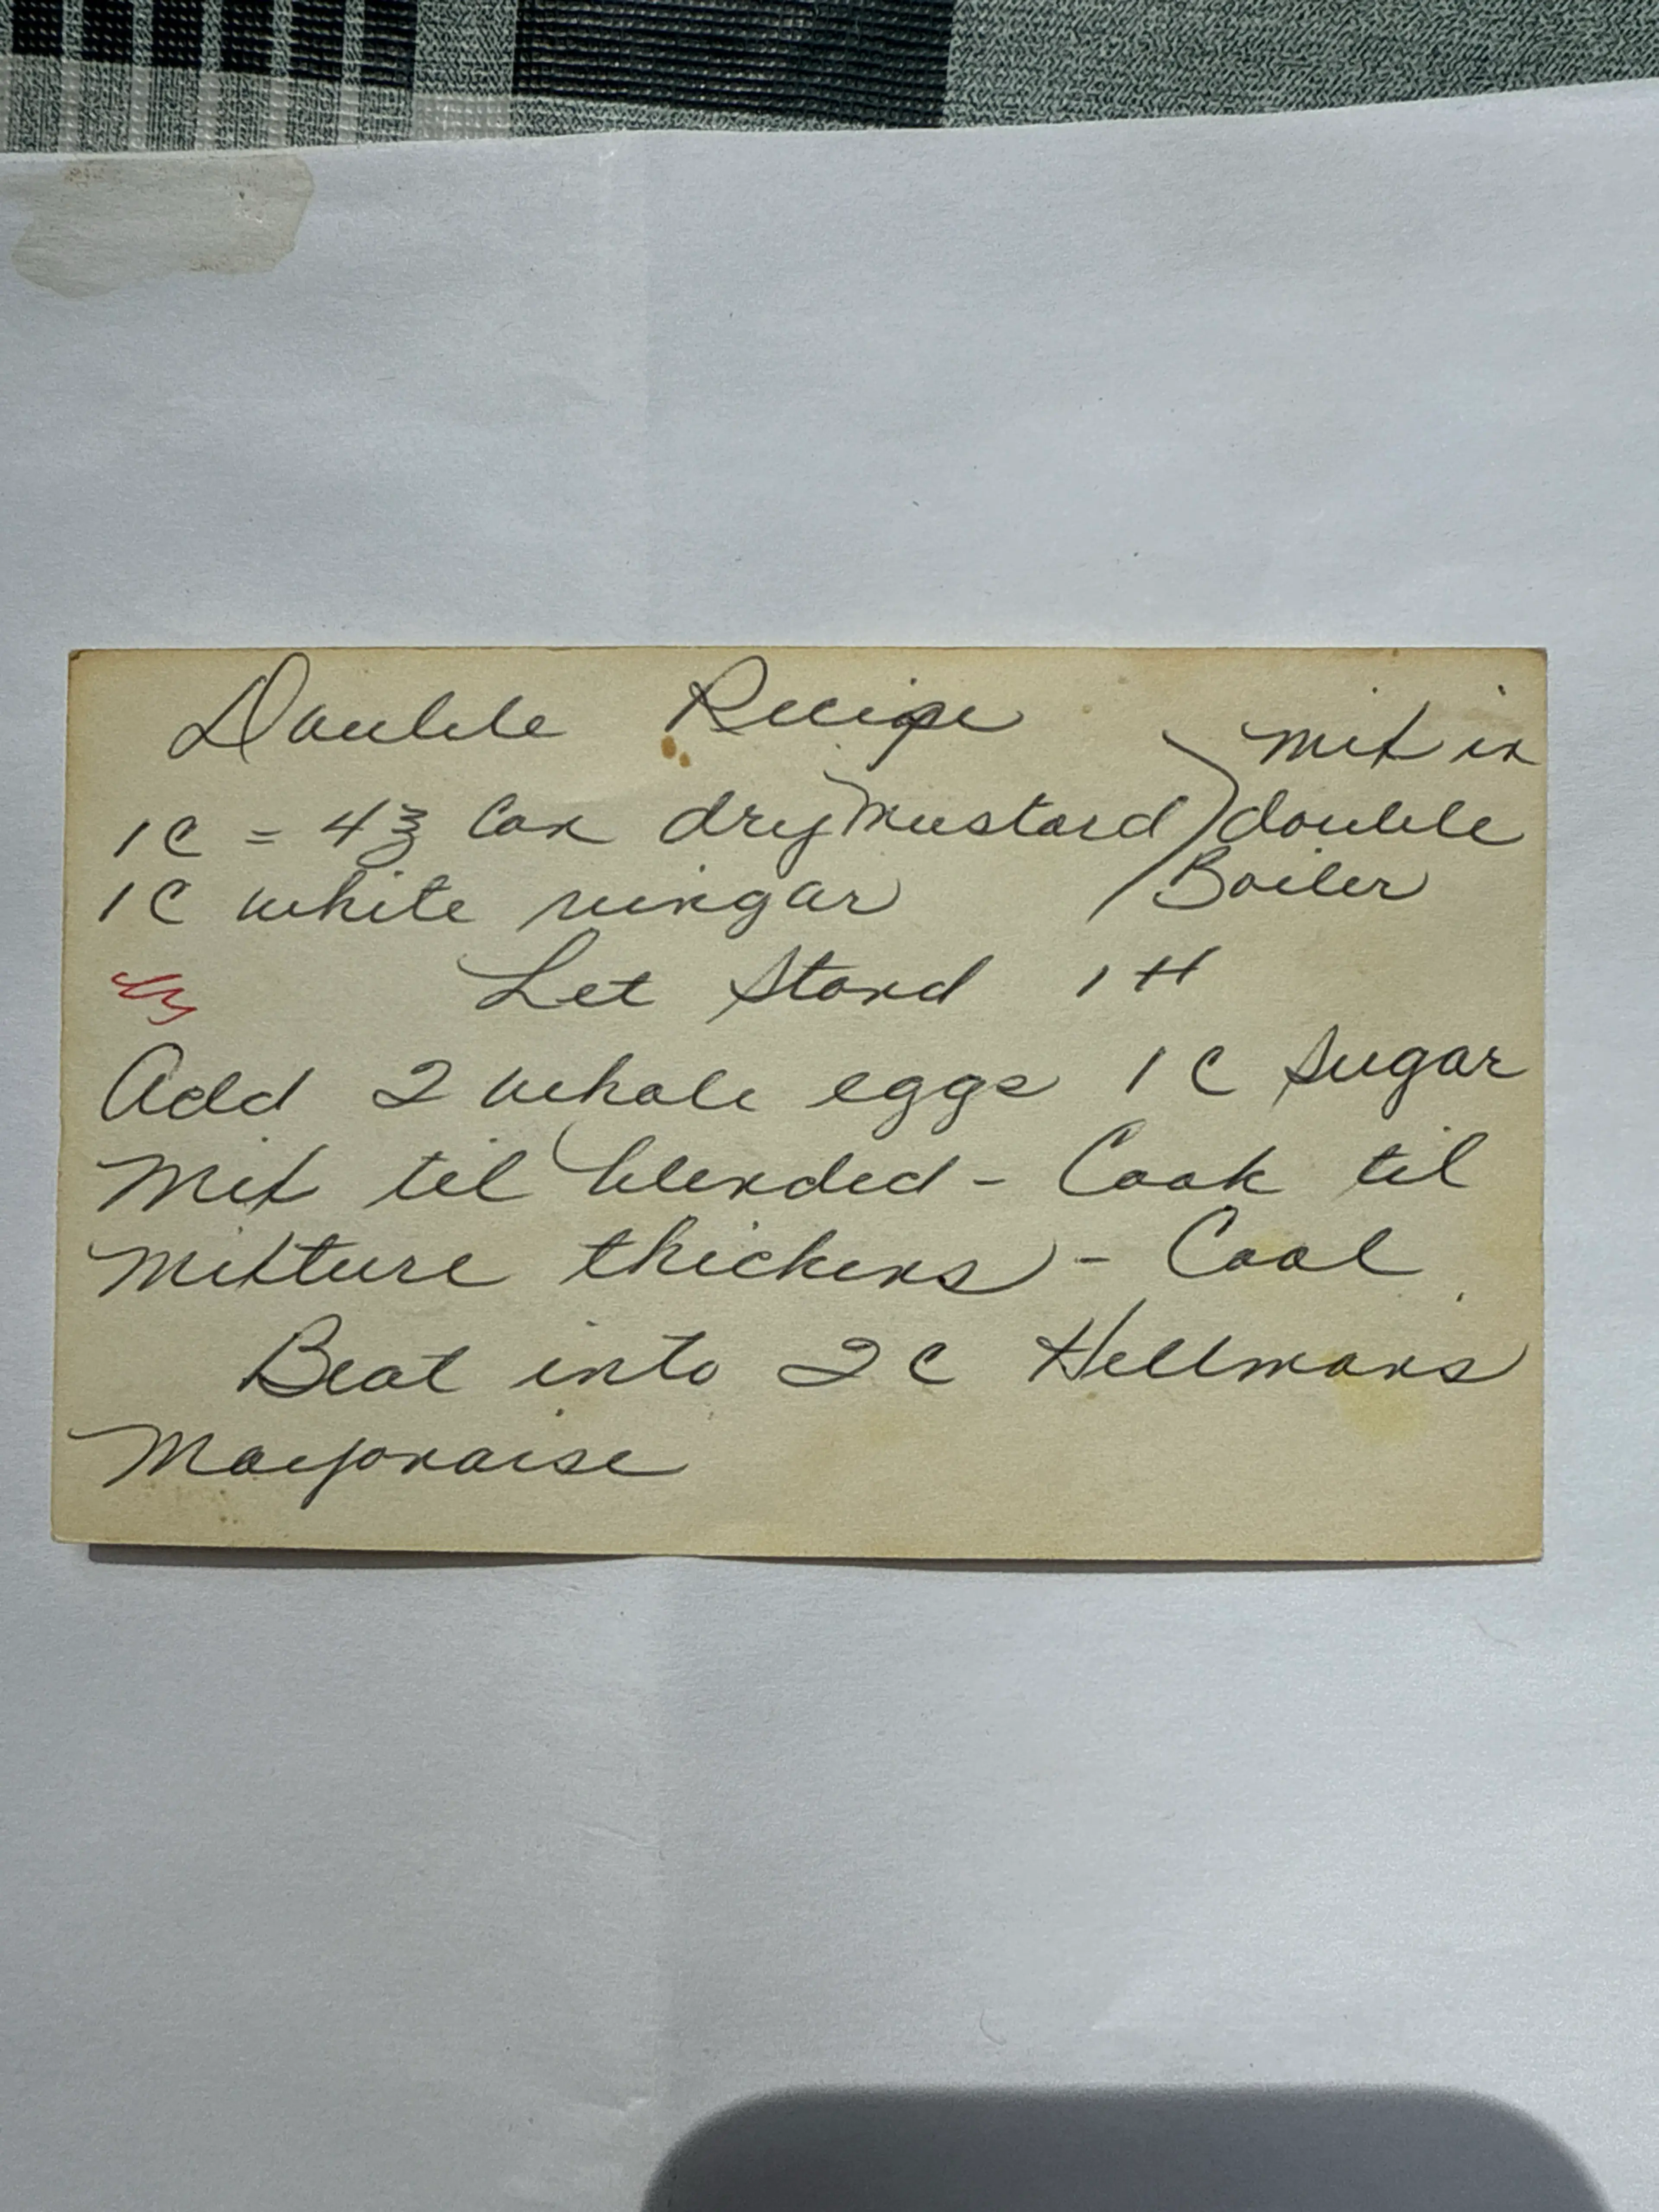 Double Recipe
mix in
1C = 4℥ Can dry Mustard double
1C white vinegar Boiler
Let Stand 1 H
Add 2 whole eggs 1 C Sugar
Mix til blended - Cook til
Mixture thickens - Cool
Beat into 2 C Hellmans
Mayonaise